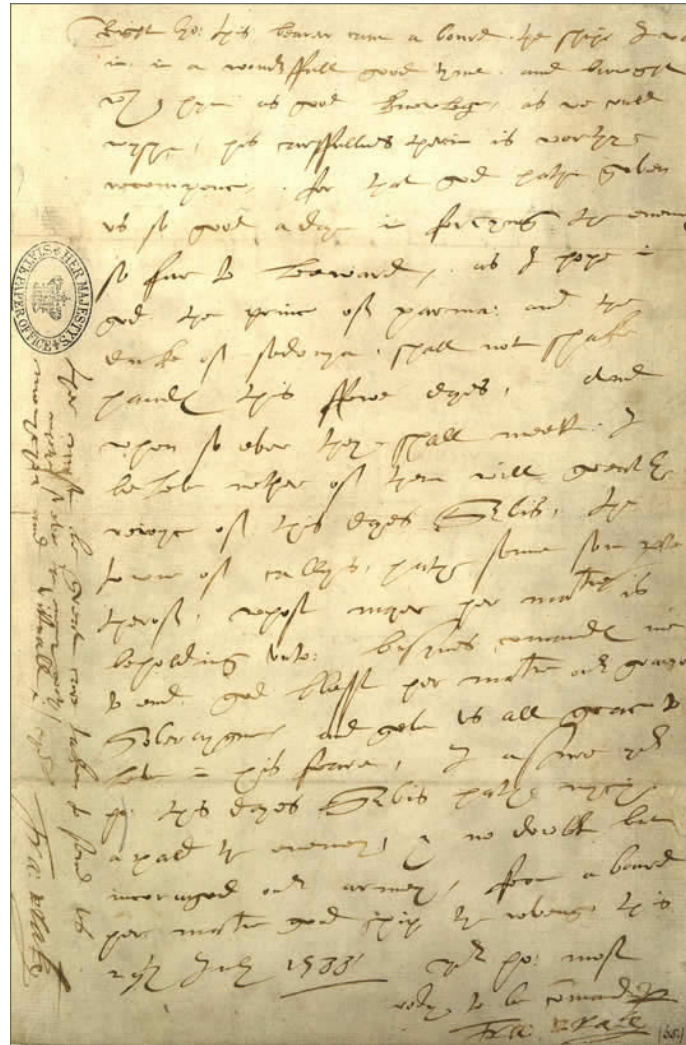 Right ho: this bearer cam a bourd the ship I was
in in a wonderffull good tyme and browght
with hym as good knowlege as we could
wyshe, his carffullnes therin is worthye
recompence, for that god hathe geven
us so good a daye in forcyng the enemy
so far to leeward, as I hope in
god the prince of parma and the
duke of sedonya shall not shake
handes this ffewe dayes, And
when so ever they shall meett, I
beleve nether of them will greatly
reioyce of this dayes Servis, the
towne of callys hathe seene some
therof, whose mayer her matie is
beholding vnto: busynes comandes me
to end. god bless her matie our gracyous
Soveraygne and geve us all grace to
leve in his feare, I assure your
ho: this dayes Servis hathe mych
apald the enemey, & no dowbt but
incoraged our armey, from a bourd
her matie good ship the revenge this
29th July 1588
your ho: most
redy to be comanded
Fra: Drake
ther must be great care taken to send us
monycyon and vittuall
Fra: Drake
HER MAJESTY'S STATE PAPER OFFICE